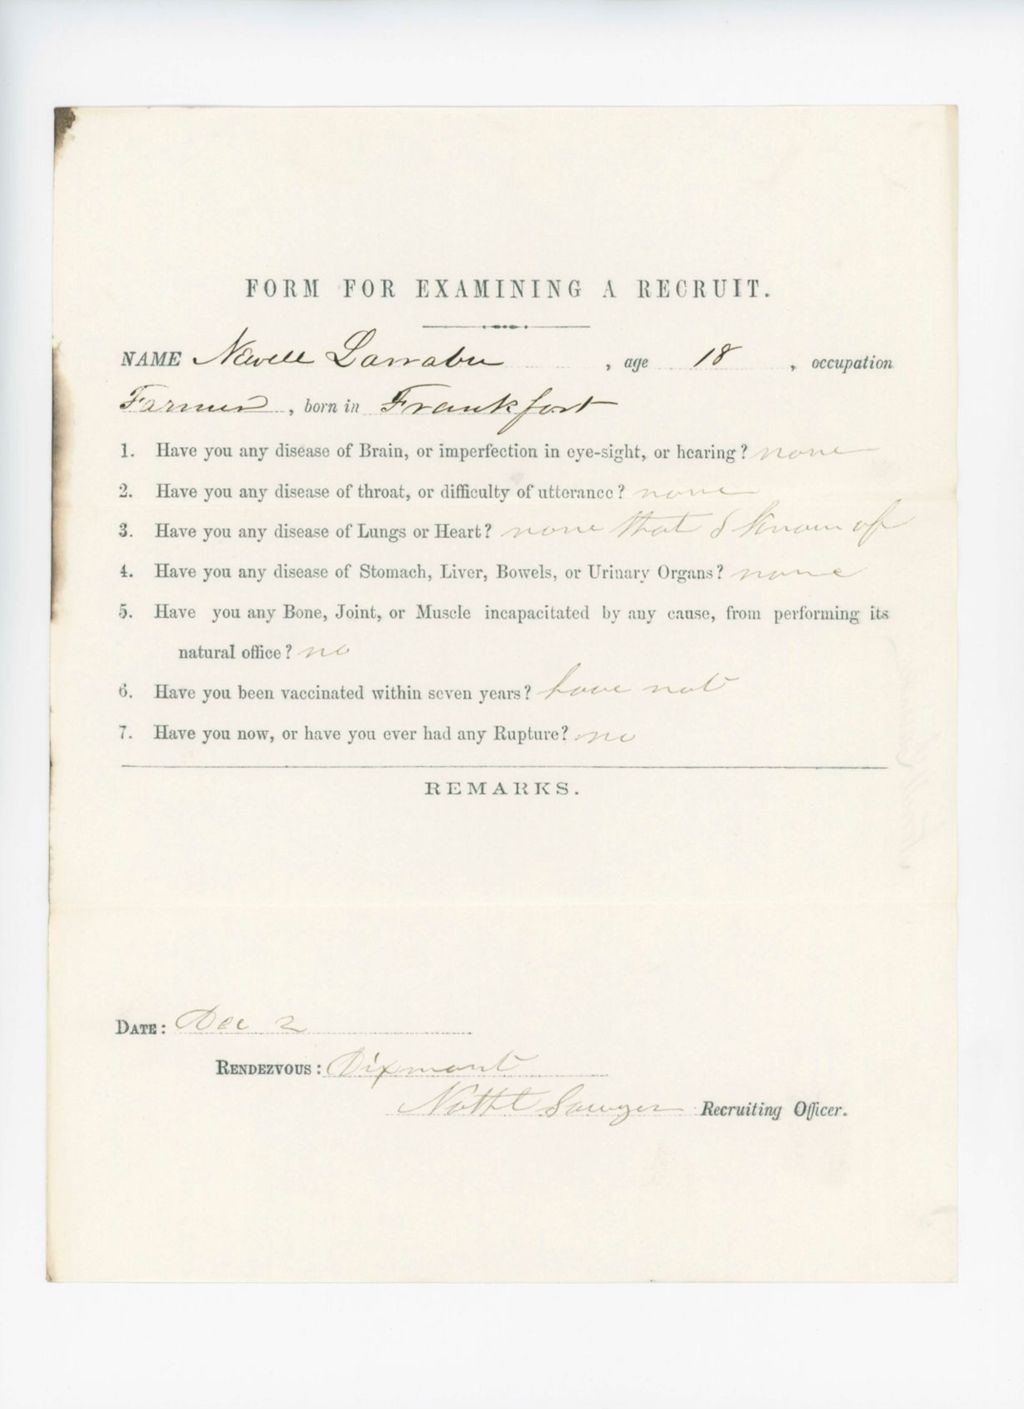 FORM FOR EXAMINING A RECRUIT.
NAME Newell Larrabee, age 18, occupation
Farmer, born in Frankfort
1. Have you any disease of Brain, or imperfection in eye-sight, or hearing? none
2. Have you any disease of throat, or difficulty of utterance? none
3. Have you any disease of Lungs or Heart? none that I know of
4. Have you any disease of Stomach, Liver, Bowels, or Urinary Organs? none
5. Have you any Bone, Joint, or Muscle incapacitated by any cause, from performing its
natural office? no
6. Have you been vaccinated within seven years? have not
7. Have you now, or have you ever had any Rupture? no
REMARKS.
DATE: Dec 2
RENDEZVOUS: Dixmont
Nathl Sawyer Recruiting Officer.